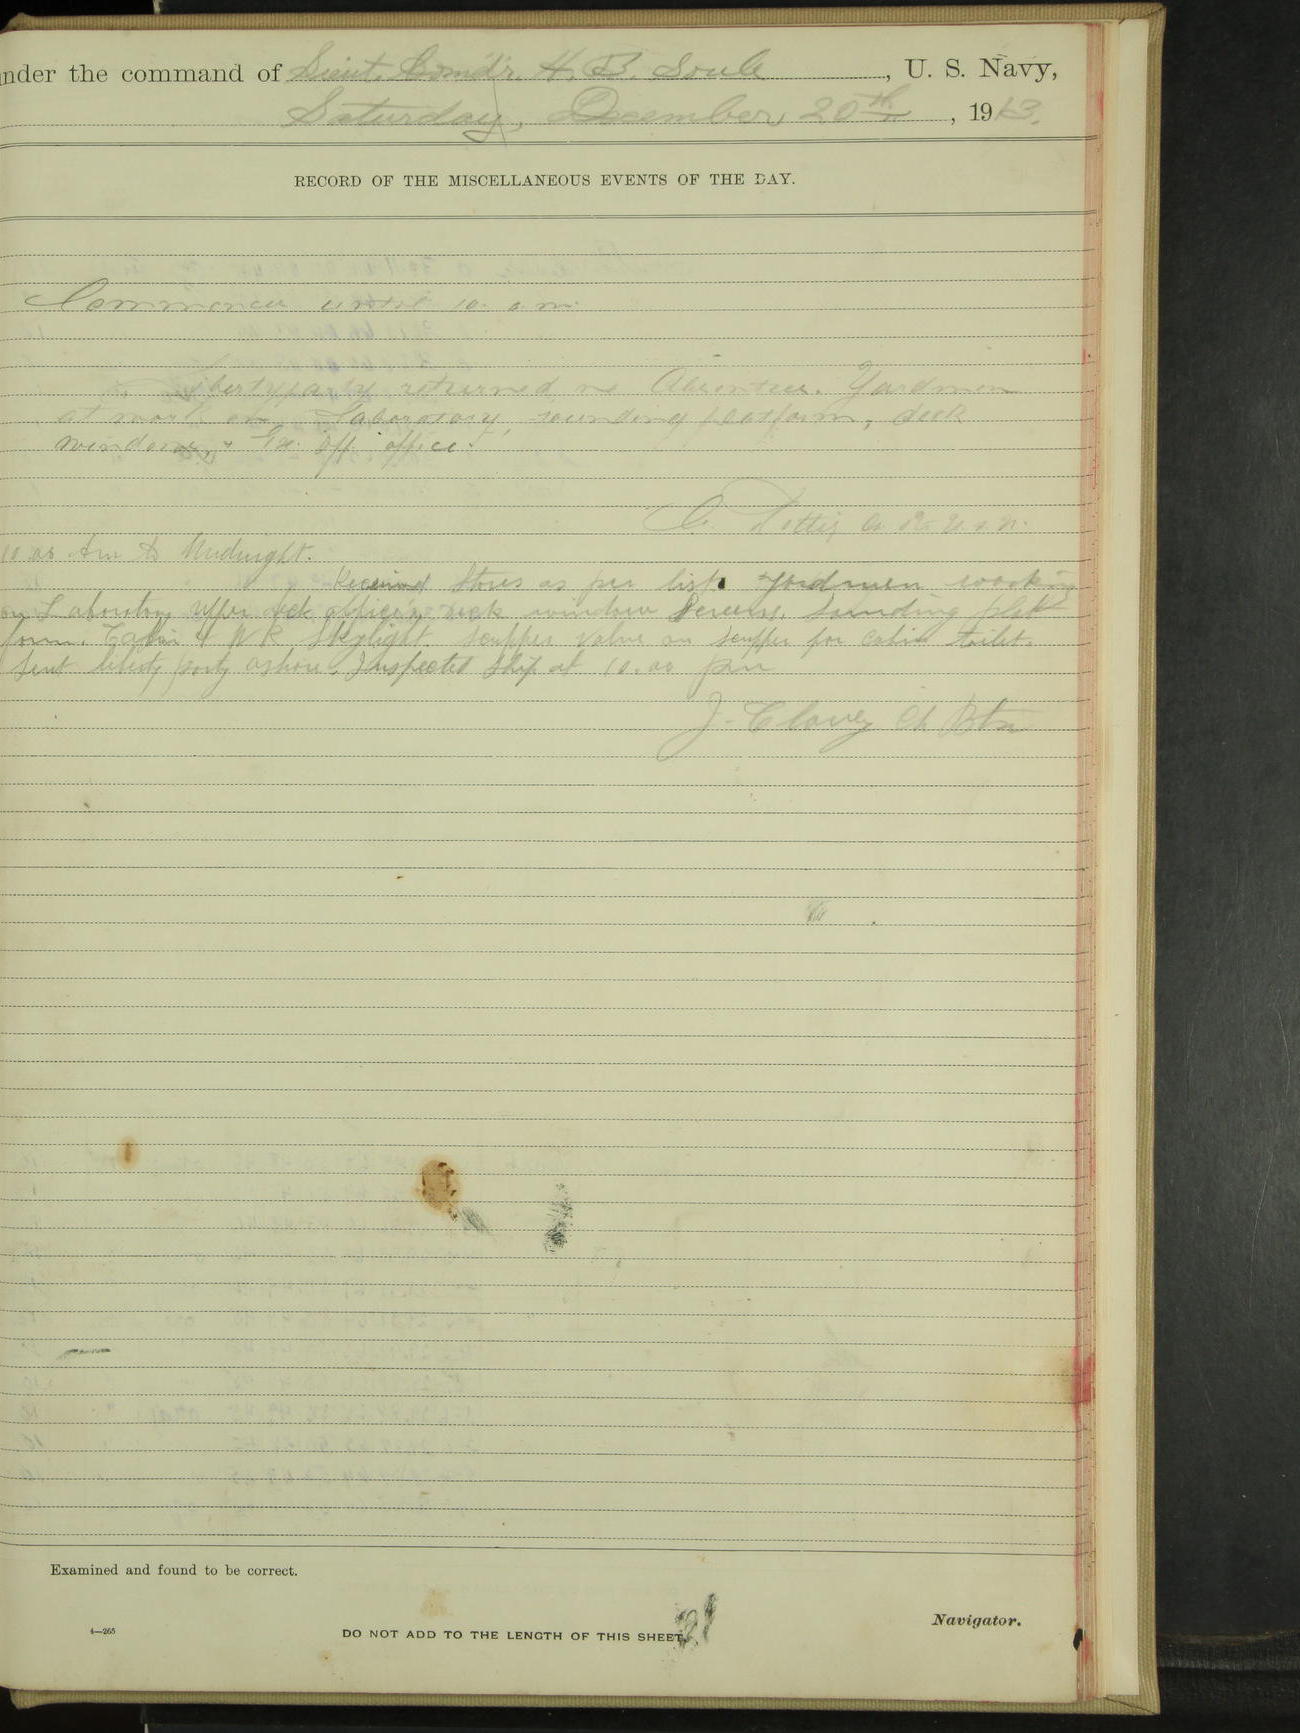 nder the command of Lieut. Comd'r. H. B. Soule, U. S. Navy,
Saturday, December 20th, 1913.
RECORD OF THE MISCELLANEOUS EVENTS OF THE DAY.
Commences until 10. a.m.
Liberty party returned no Absentees. Yardmen
at work on Laboratory, sounding platform, deck
windows, & Ex. Off. office.
10.00 Am to Midnight.
Received Stores as per list. Yardmen working
on Laboratory upper deck officers, deck window screens, Sounding plat
form. Cabin & W R Skylight scupper valve on scupper for cabin toilet.
Sent liberty party ashore. Inspected Ship at 10.00 pm
J. Clancy Ch Btn
Examined and found to be correct.
4—265
DO NOT ADD TO THE LENGTH OF THIS SHEET.
Navigator.